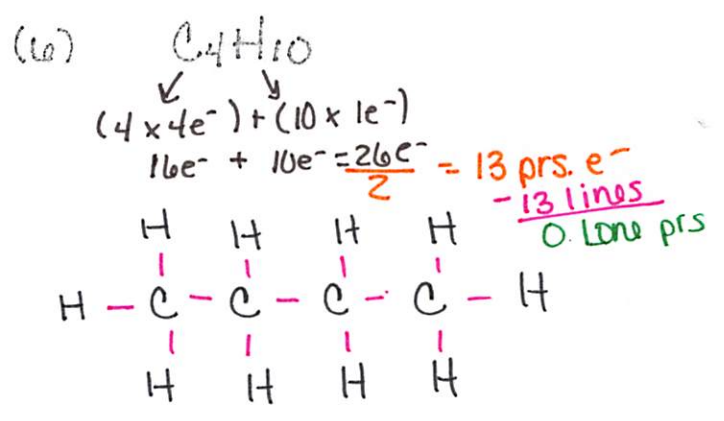 (6) C4H10
(4 x 4e-) + (10 x 1e-)
16e- + 10e- = 26e-/2 = 13 prs. e-
- 13 lines
0. Lone prs
H H H H
H - C - C - C - C - H
H H H H